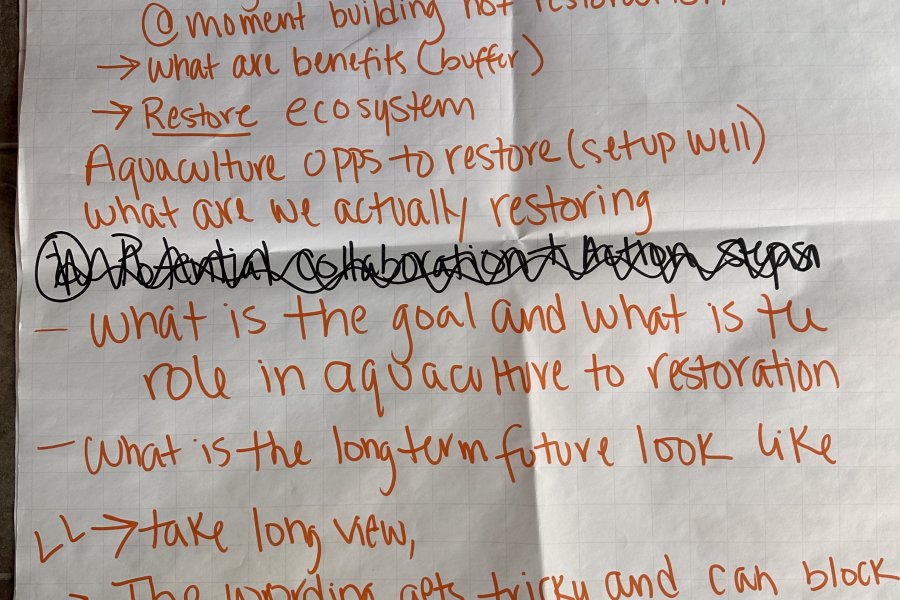 @ moment building not restoration.
→ what are benefits (buffer)
→ Restore ecosystem
Aquaculture opps to restore (setup well)
what are we actually restoring
Potential collaboration + Action steps
— what is the goal and what is the
role in aquaculture to restoration
— What is the long term future look like
LL → take long view,
The wording gets tricky and can block